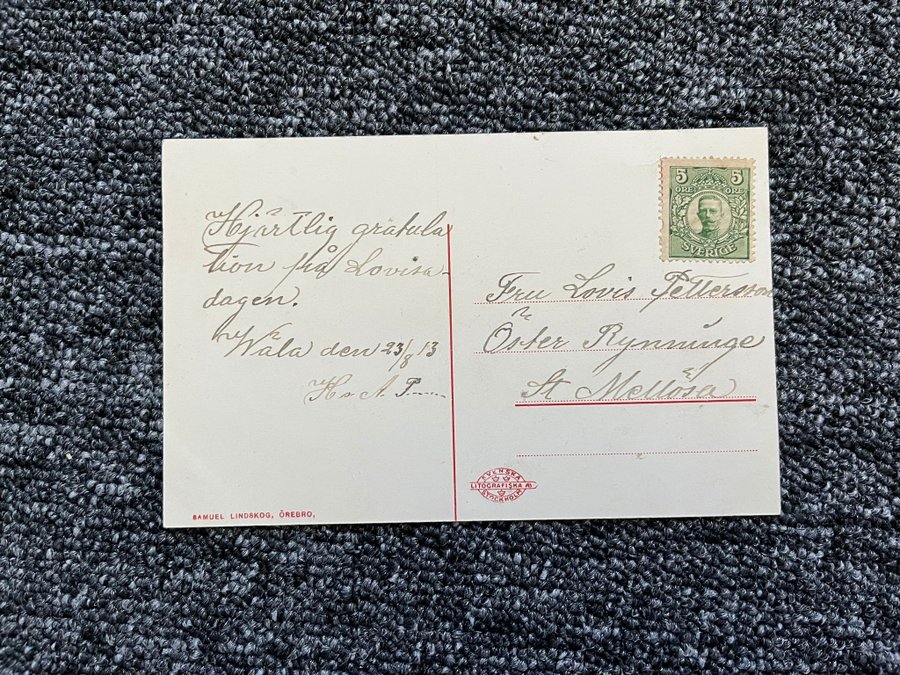 Hjärtlig gratula
tion på Lovisa-
dagen.
Wåla den 23/8 13
H. A. P.----
5 5
ÖRE ÖRE
SVERIGE
Fru Lovis Pettersson
Öster Rynninge
St Mellösa
SVENSKA
LITOGRAFISKA AB
STOCKHOLM
SAMUEL LINDSKOG, ÖREBRO,